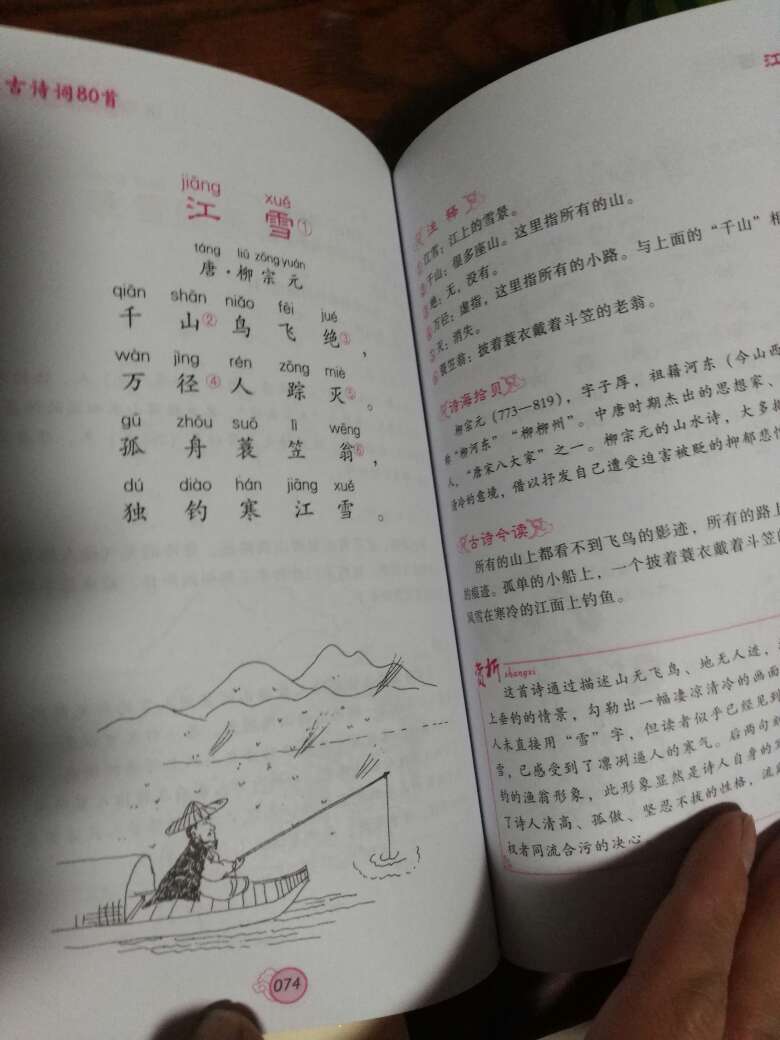 古诗词80首
jiāng xuě
江雪①
táng liǔ zōng yuán
唐·柳宗元
qiān shān niǎo fēi jué
千山②鸟飞绝③，
wàn jìng rén zōng miè
万径④人踪灭⑤。
gū zhōu suō lì wēng
孤舟蓑笠翁⑥，
dú diào hán jiāng xuě
独钓寒江雪。
074
江
注释
①江雪：江上的雪景。
②千山：很多座山。这里指所有的山。
③绝：无，没有。
④万径：虚指，这里指所有的小路。与上面的“千山”相
⑤灭：消失。
⑥蓑笠翁：披着蓑衣戴着斗笠的老翁。
诗海拾贝
柳宗元（773—819），字子厚，祖籍河东（今山西
“柳河东”“柳柳州”。中唐时期杰出的思想家、
人，“唐宋八大家”之一。柳宗元的山水诗，大多
清冷的意境，借以抒发自己遭受迫害被贬的抑郁悲
古诗今读
所有的山上都看不到飞鸟的影迹，所有的路上
的痕迹。孤单的小船上，一个披着蓑衣戴着斗笠的
风雪在寒冷的江面上钓鱼。
赏析 shangxi
这首诗通过描述山无飞鸟、地无人迹，
上垂钓的情景，勾勒出一幅凄凉清冷的画面
人未直接用“雪”字，但读者似乎已经见到
雪，已感受到了凛冽逼人的寒气。后两句
钓的渔翁形象，此形象显然是诗人自身的
了诗人清高、孤傲、坚忍不拔的性格，流
权者同流合污的决心